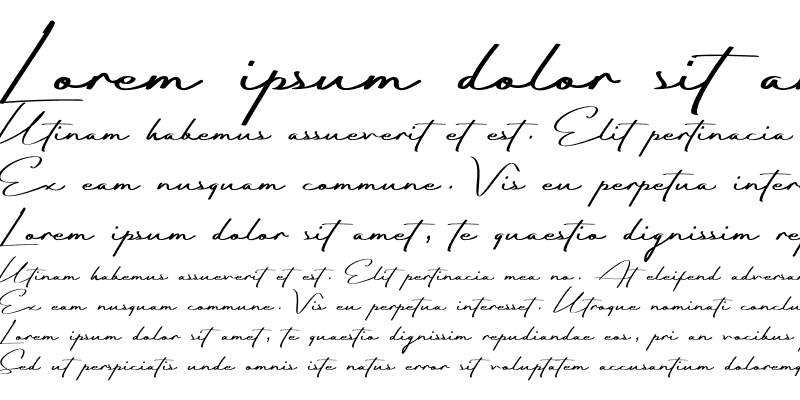 Lorem ipsum dolor sit
Utinam habemus assueverit et est. Elit pertinacia
Ex eam nusquam commune. Vis eu perpetua
Lorem ipsum dolor sit amet, te quaestio dignissim
Utinam habemus assueverit et est. Elit pertinacia mea no. At eleifend
Ex eam nusquam commune. Vis eu perpetua interesset. Utroque nominati
Lorem ipsum dolor sit amet, te quaestio dignissim repudiandae eos, pri an vocibus
Sed ut perspiciatis unde omnis iste natus error sit voluptatem accusantium